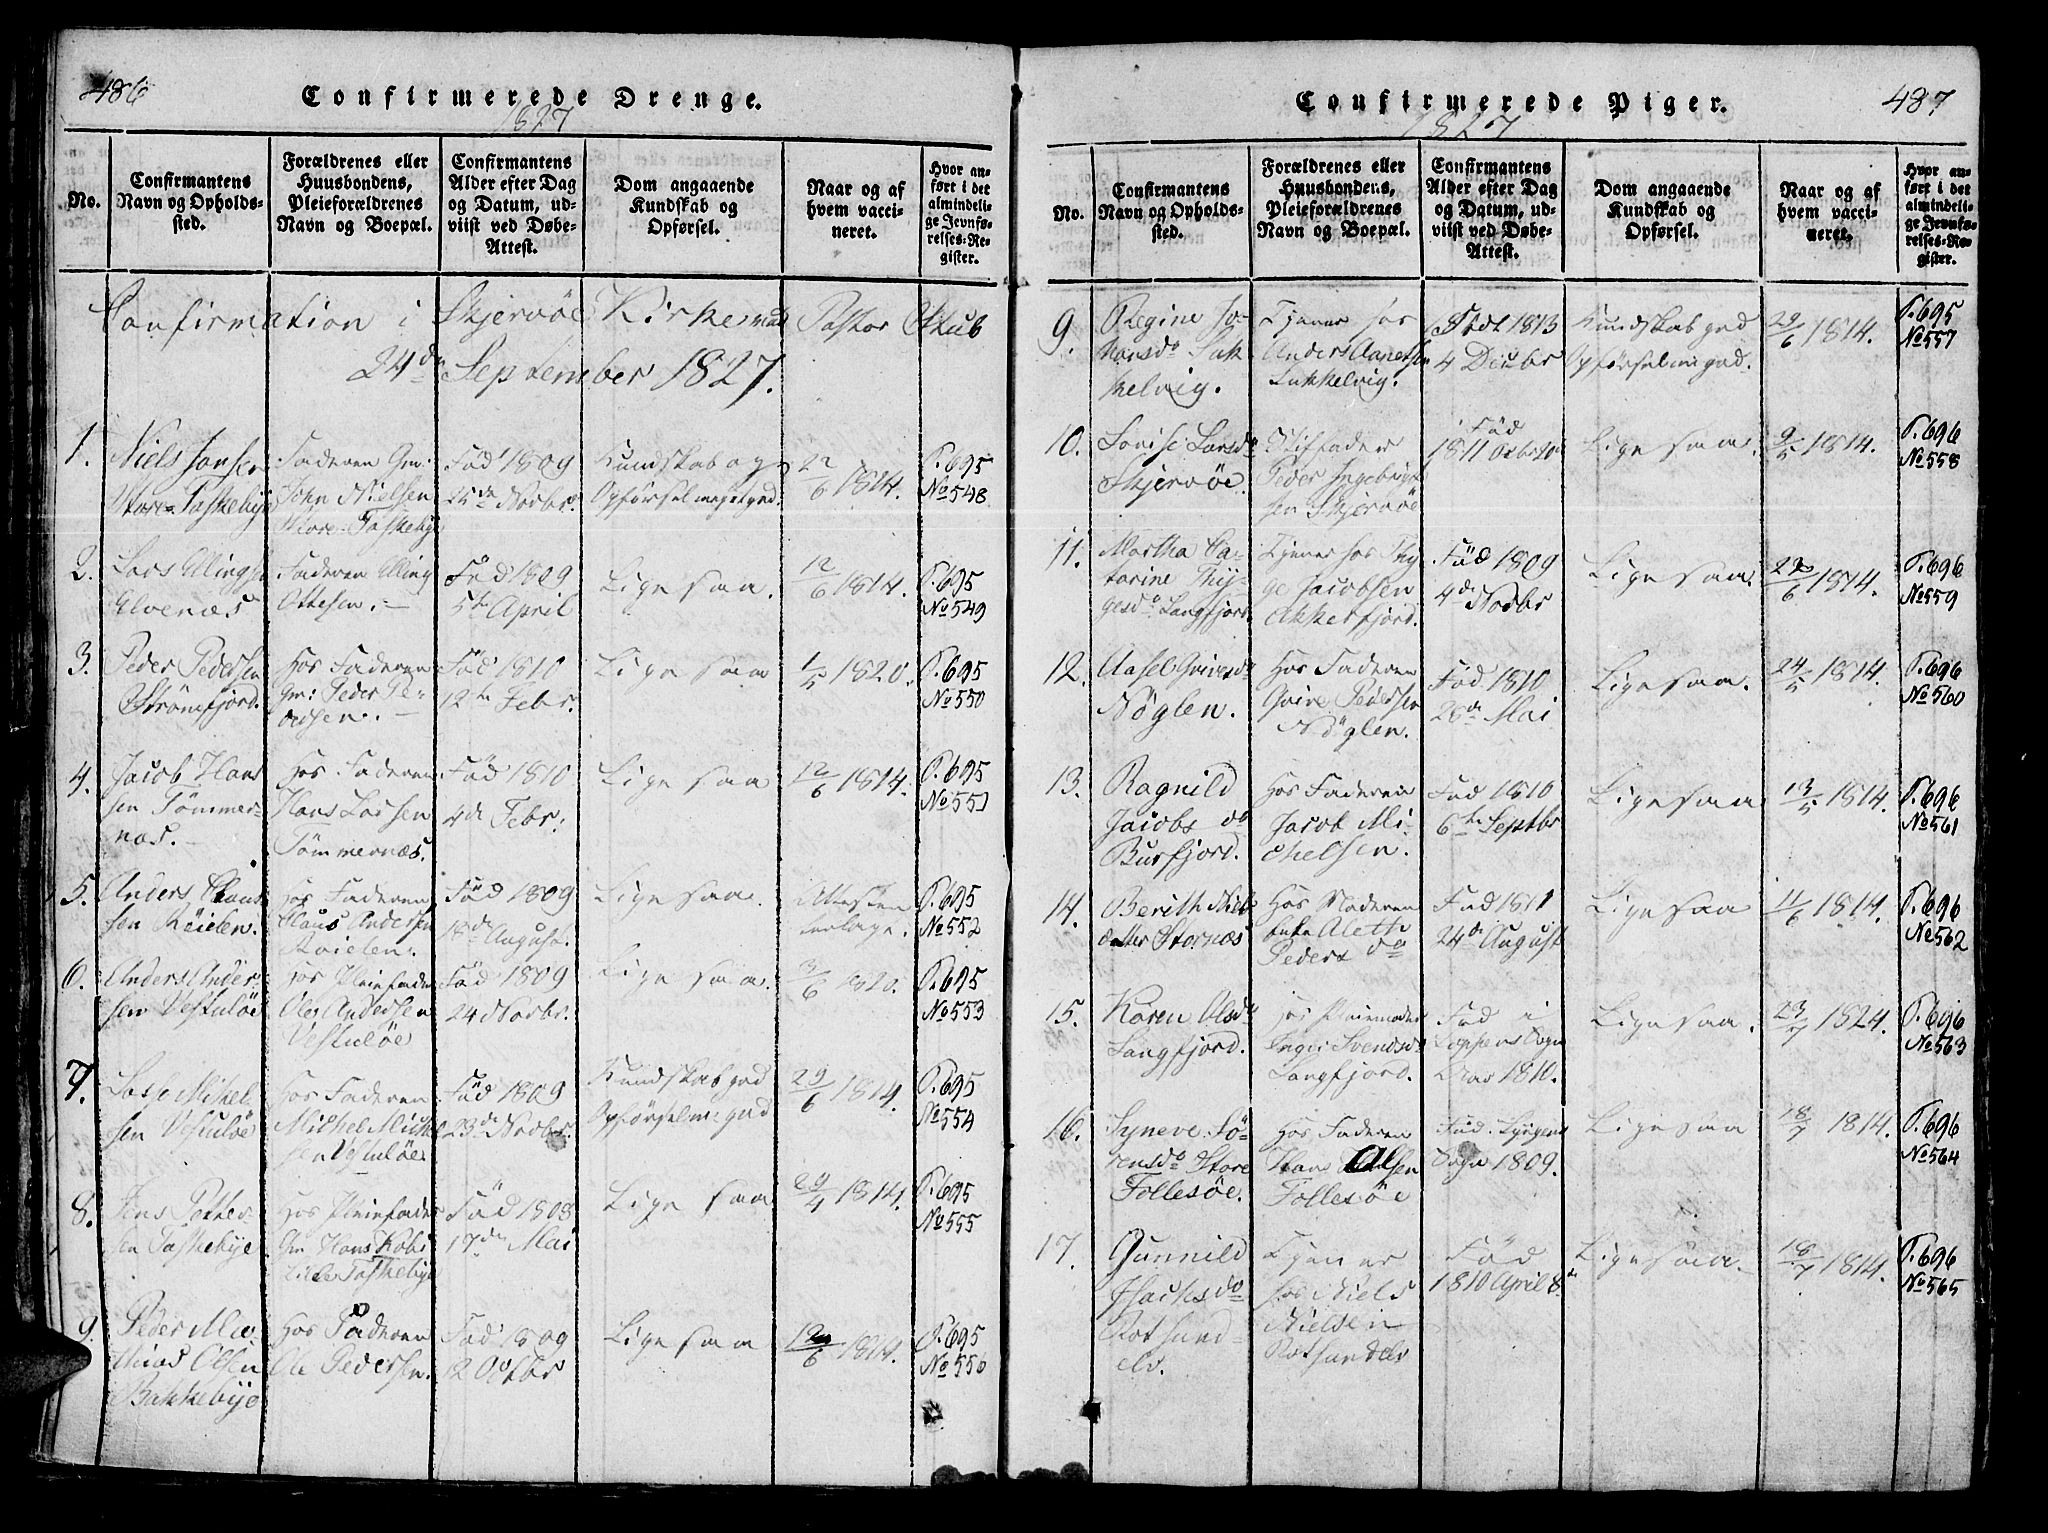 486
Confirmerede Drenge.
1827
No.
Confirmantens Navn og Opholds-sted.
Forældrenes eller Huusbondens, Pleieforældrenes Navn og Boepæl.
Confirmantens Alder efter Dag og Datum, ud-viist ved Døbe-Attest.
Dom angaaende Kundskab og Opførsel.
Naar og af hvem vacci-neret.
Hvor an-ført i det almindeli-ge Jevnfø-relses-Re-gister.
Confirmation i Skjervöe Kirke ved Pastor Stub
24de September 1827.
1. Niels Jonsen Store Taskebye
Faderen Gm: John Nielsen Store Taskebye
Föd 1809 25de Novbr.
Kundskab og Opförsel meget god.
22/6 1814.
P. 695 No 548
2. Lars Ellingsen Elvenæs
Faderen Elling Ottesen.
Föd 1809 5te April
Lige saa.
12/6 1814.
P. 695 No 549
3. Peder Pedersen Strömfjord.
Hos Faderen Gm: Peder Pedersen.
Föd 1810 12te Febr.
Lige saa
1/5 1820.
P. 695 No 550
4. Jacob Hansen Tömmernæs.
Hos Faderen Hans Larsen Tömmernæs.
Föd 1810 4de Febr:
Lige saa
12/6 1814.
P. 695 No 551
5. Anders Clausen Reielen.
Hos Faderen Claus Andersen
Föd 1809 18de August.
Lige saa.
Attesten
P. 695 No 552
6. Anders Andersen Vestulöe
Hos Pleiefader Ole Andersen Vestulöe
Föd 1809 24 Novbr.
Lige saa.
3/6 1820.
P. 695 No 553
7. Lasse Mikelsen Vestulöe
Hos Faderen Michel Michelsen Vestulöe
Föd 1809 23de Novbr.
Kundskab god Opförsel m: god
29/6 1814.
P. 695 No 554
8. Jens Pettersen Taskebye
Hos Pleiefader Gm Hans Taskebye
Föd 1808 17de Mai
Lige saa
29/4 1814.
P. 695 No 555
9. Peder Olsen Bakkebye
Hos Faderen Ole Pedersen.
Föd 1809 12 Octbr
Lige saa
1814.
P. 695 No 556
487
Confirmerede Piger.
1827
No.
Confirmantens Navn og Opholds-sted.
Forældrenes eller Huusbondens, Pleieforældrenes Navn og Boepæl.
Confirmantens Alder efter Dag og Datum, ud-viist ved Døbe-Attest.
Dom angaaende Kundskab og Opførsel.
Naar og af hvem vacci-neret.
Hvor an-ført i det almindeli-ge Jevnfø-relses-Re-gister.
9. Regine Johansdr
Tjener hos Anders
Födt 1813 4 Decbr
Kundskab god Opförsel m god.
29/6 1814.
P. 695 No 557
10. Lovise Larsdr Skjervöe.
Stiffader Peder Ingebrigtsen Skjervöe
Föd 1811
Lige saa.
9/5 1814.
P. 696 No 558
11. Martha Catarine Thygesdr Langfjord.
Tjener hos Thyge Jacobsen Akkerfjord.
Föd 1809 4de Novbr
Lige saa.
1814.
P. 696 No 559
12. Aasel Nöglen.
Hos Faderen Nöglen.
Föd 1810 28de Mai
Lige saa.
24/5 1814.
P. 696 No 560
13. Ragnild Jacobs dr Burfjord.
Hos Faderen Jacob Michelsen.
Föd 1810 6te Septbr
Lige saa
13/5 1814.
P. 696 No 561
14. Berith Niels datter Stornæs
Hos Moderen Enke Aleth Peders dr
Föd 1811 24de August
Lige saa
11/6 1814.
P. 696 No 562
15. Karen Olsdr Langfjord.
Hos Pleiemoder Inger Svendsdr Langfjord.
Föd i Loppens Sogn 1810.
Lige saa.
23/7 1824.
P. 696 No 563
16. Syneve Sörensdr Store Follesöe.
Hos Faderen Follesöe
Föd Lyngens Sogn 1809.
Lige saa
18/7 1814.
P. 696 No 564
17. Gunnild Isachsdr Rotsundelv.
Tjener hos Niels Nielsen Rotsundelv
Föd 1810 April 8de
Lige saa.
18/7 1814.
P. 696 No 565